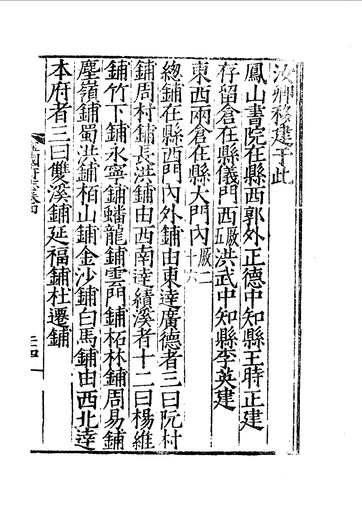 汝卿移建于此
鳳山書院在縣西郭外正德中知縣王時正建
存留倉在縣儀門西廒五洪武中知縣李英建
東西兩倉在縣大門內廒二十六
總鋪在縣西門內外鋪由東達廣德者三曰阮村
鋪周村鋪長洪鋪由西南達績溪者十二曰楊維
鋪竹下鋪永寧鋪蟠龍鋪雲門鋪柘林鋪周易鋪
塵嶺鋪蜀洪鋪栢山鋪金沙鋪白馬鋪由西北達
本府者三曰雙溪鋪延福鋪杜遷鋪